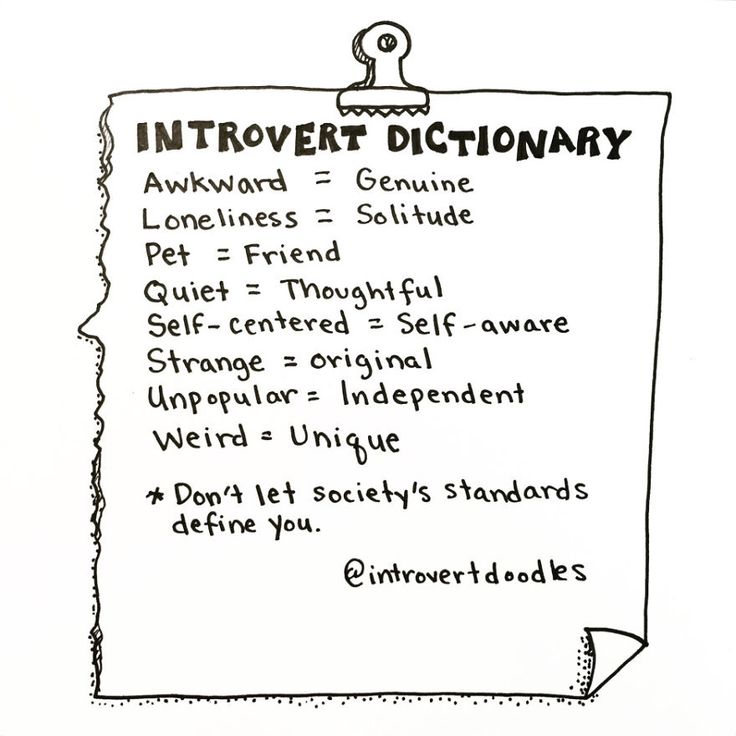 INTROVERT DICTIONARY
Awkward = Genuine
Loneliness = Solitude
Pet = Friend
Quiet = Thoughtful
Self-centered = Self-aware
Strange = original
Unpopular = Independent
Weird = Unique
* Don't let society's standards
define you.
@introvertdoodles